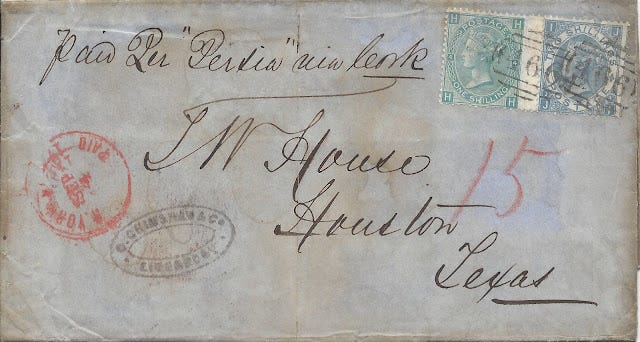 Paid Per "Persia" via Cork
H H
POSTAGE
ONE SHILLING
H H
TWO SHILLINGS
466
T W House
15
Houston
Texas
N. YORK
PAID
SEP
& Co
LIVERPOOL